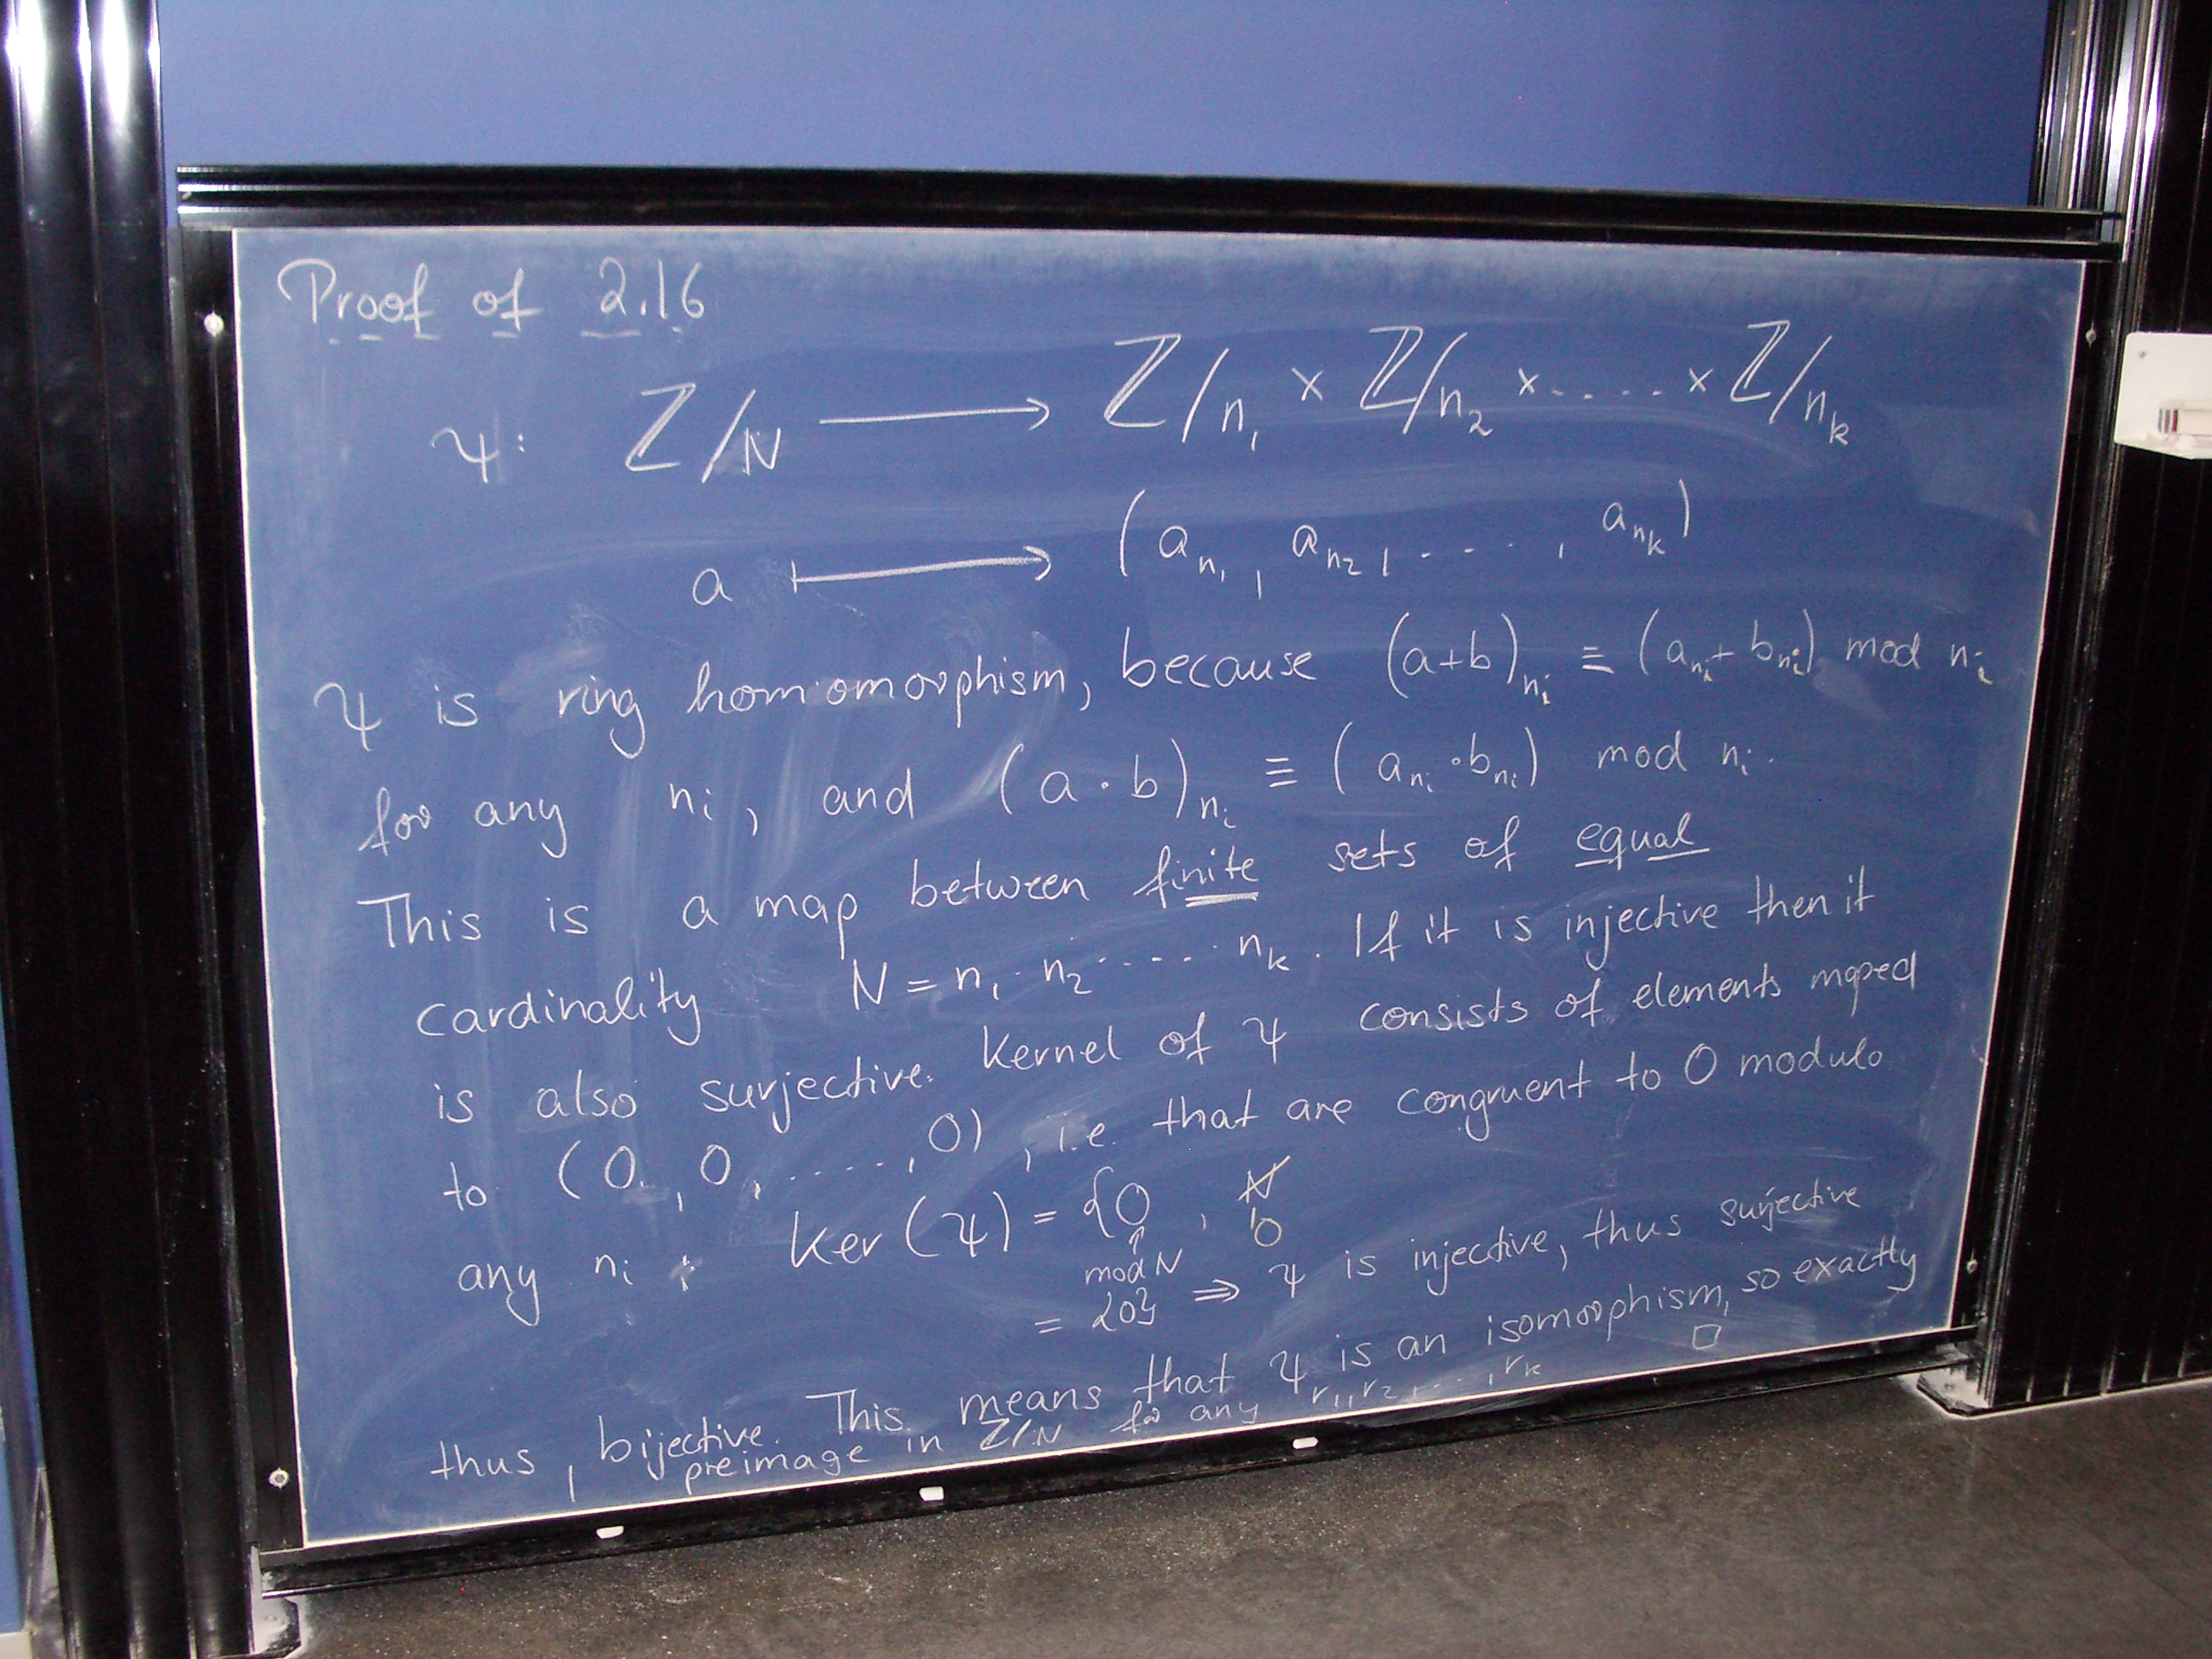 Proof of 2.16
ψ: ℤ/N ⟶ ℤ/n₁ × ℤ/n₂ × ..... × ℤ/nₖ
a ⟼ (a_{n₁}, a_{n₂}, ....., a_{nₖ})
ψ is ring homomorphism, because (a+b)_{nᵢ} ≡ (a_{nᵢ} + b_{nᵢ}) mod nᵢ
for any nᵢ, and (a · b)_{nᵢ} ≡ (a_{nᵢ} · b_{nᵢ}) mod nᵢ.
This is a map between finite sets of equal
cardinality N = n₁ · n₂ ····· nₖ. If it is injective then it
is also surjective. Kernel of ψ consists of elements maped
to (0, 0, ....., 0), i.e. that are congruent to 0 modulo
any nᵢ. Ker(ψ) = {0, N
↑ mod N 0
= {0} ⇒ ψ is injective, thus surjective
thus, bijective. This means that ψ is an isomorphism, so exactly
preimage in ℤ/N for any r₁, r₂, ..., rₖ □